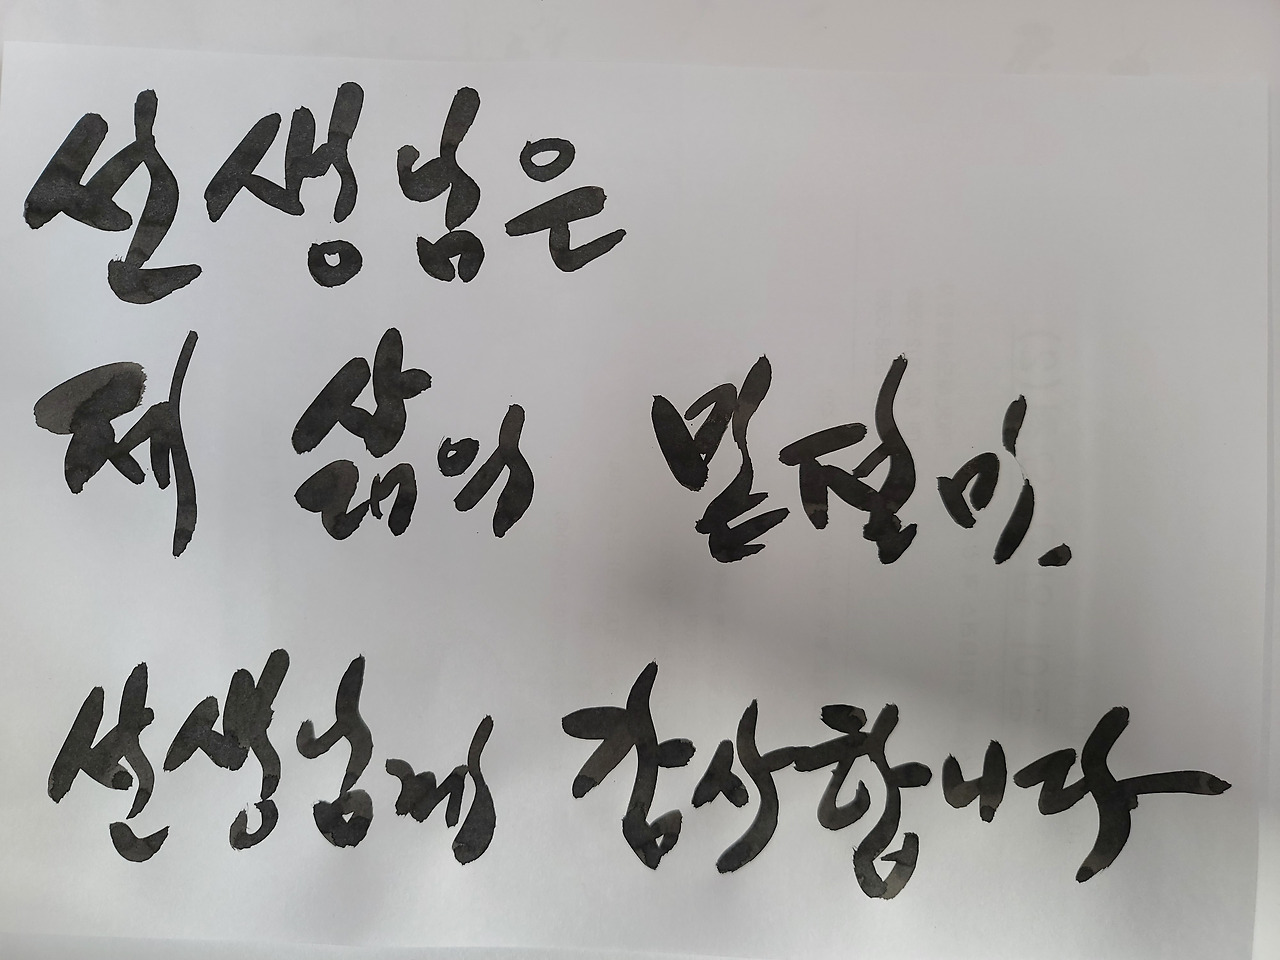 선생님은
제 삶의 밑절미.
선생님께 감사합니다